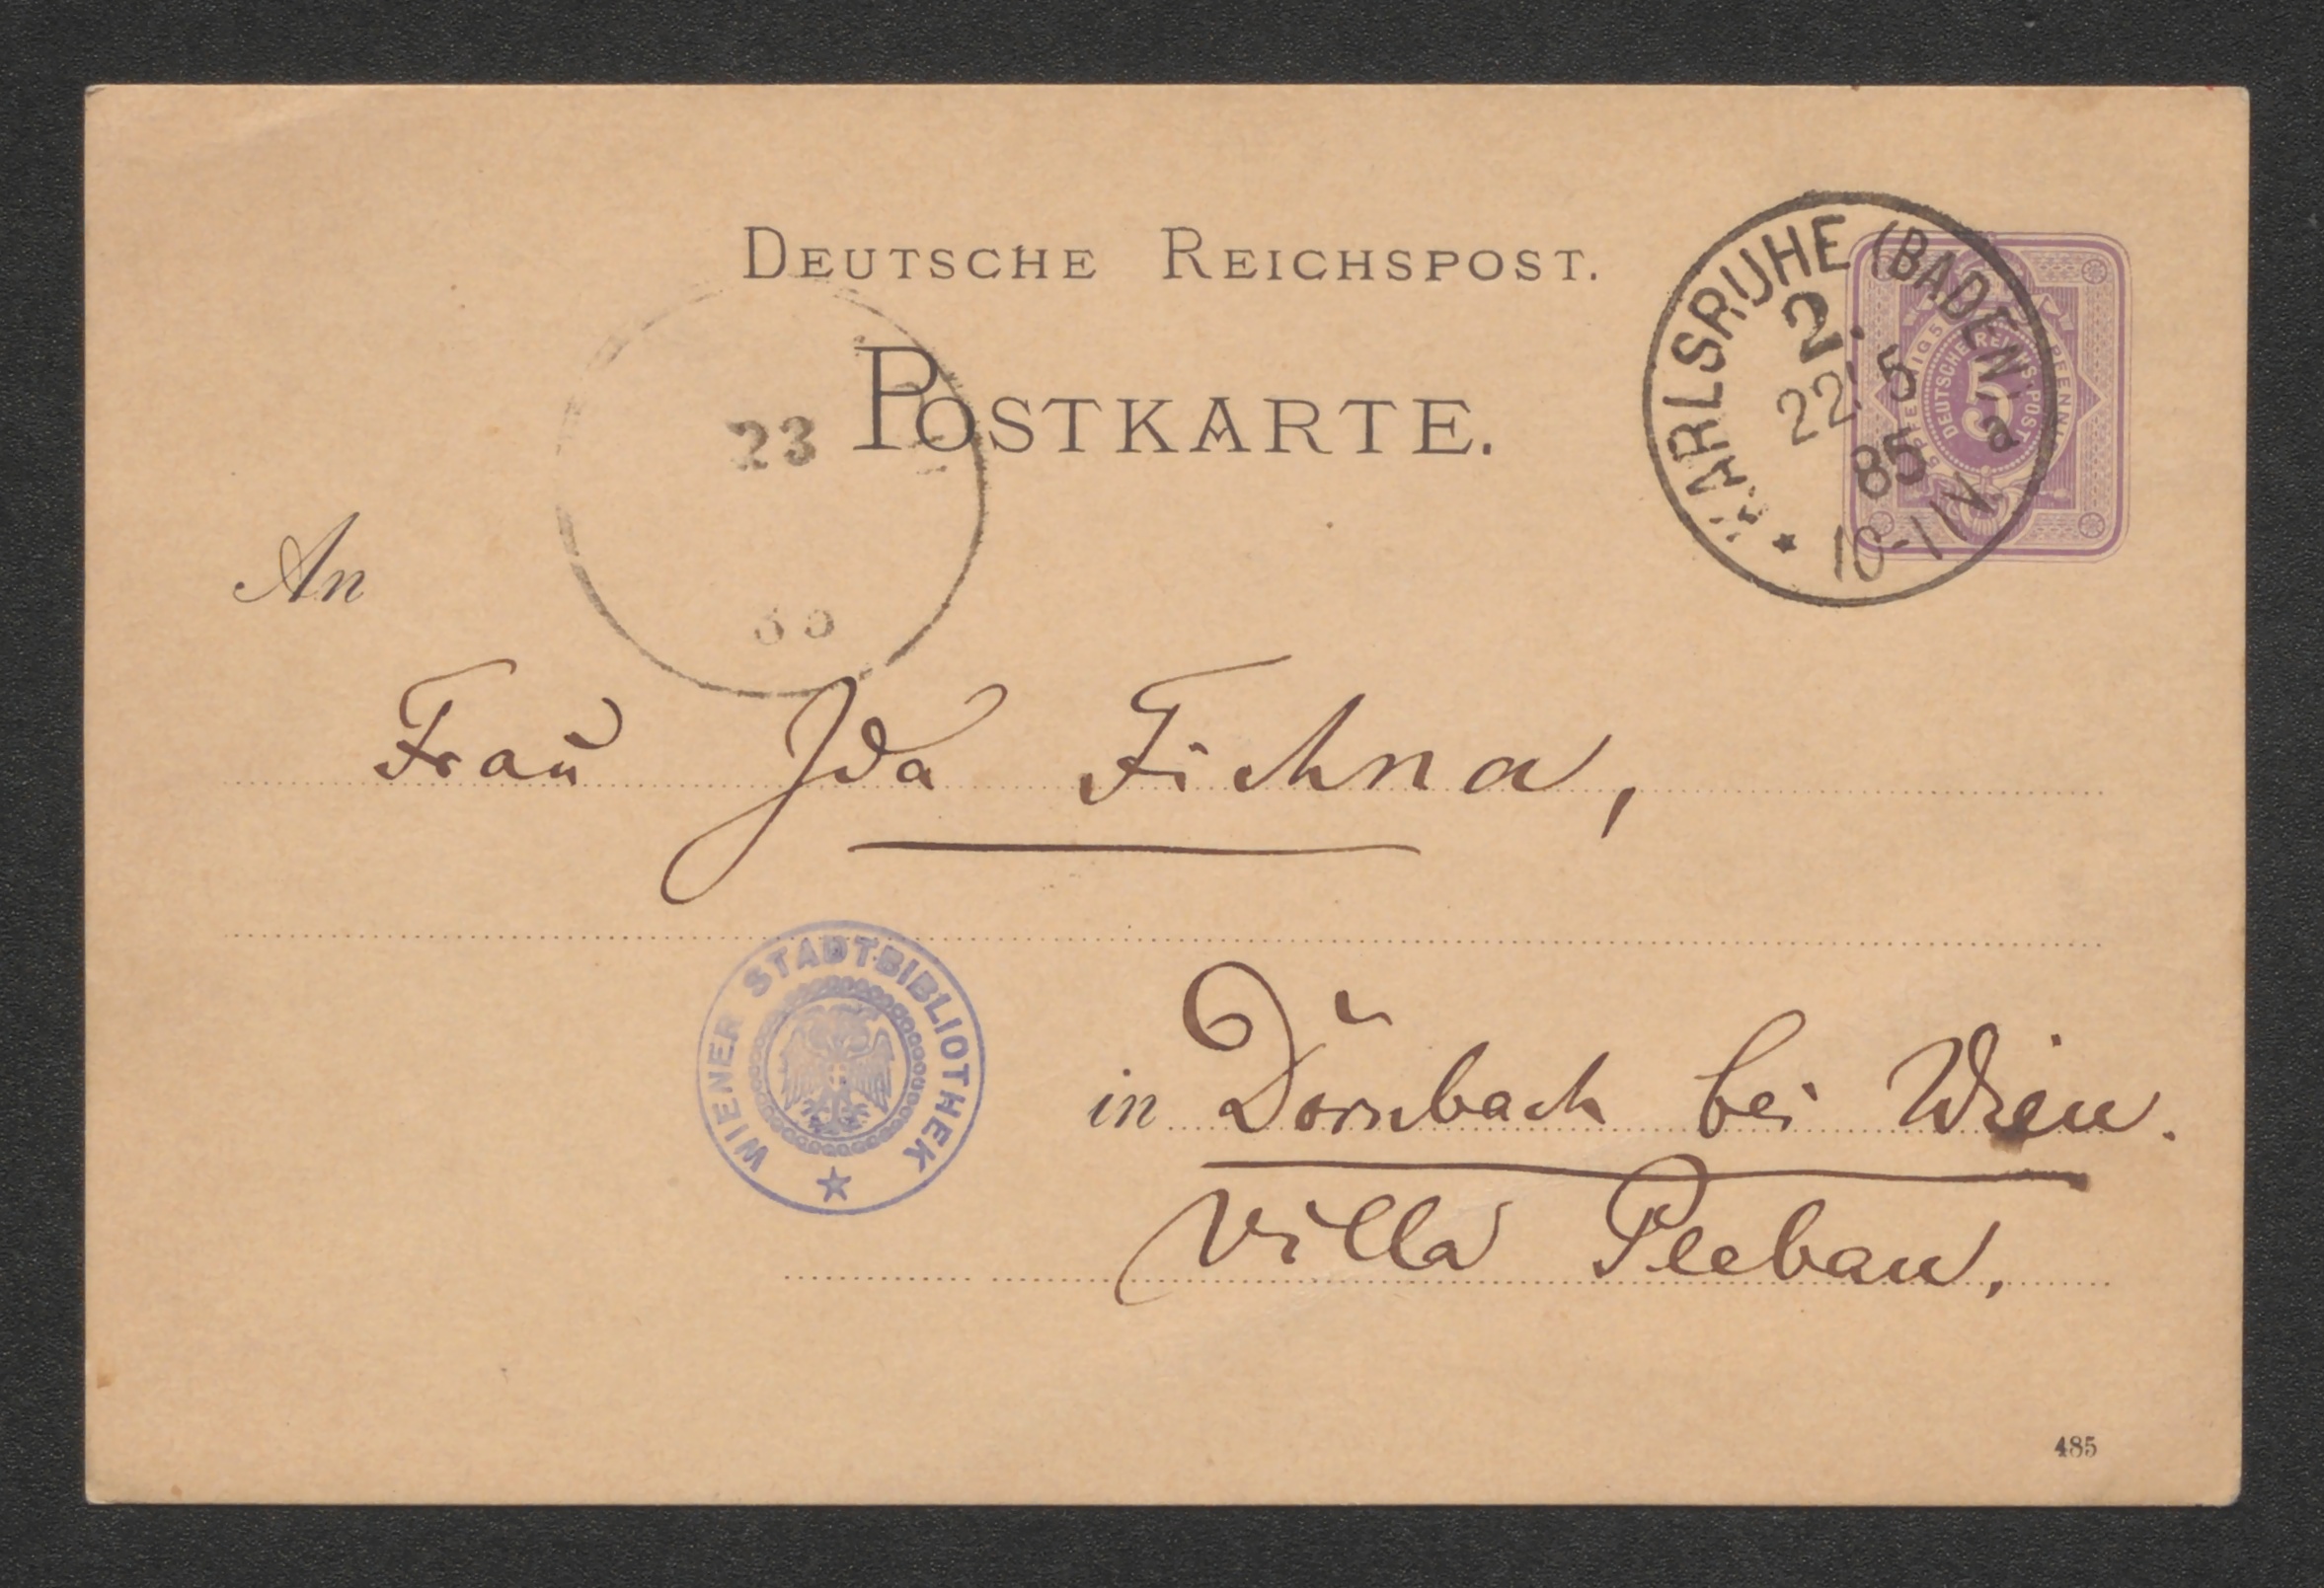 DEUTSCHE REICHSPOST.
POSTKARTE.
KARLSRUHE (BADEN)
2.
22 5
85
a
10-11 V
5 PFENNIG 5 PFENNIG
DEUTSCHE REICHS-POST
5
23
An
Frau Ida Fichna,
WIENER STADTBIBLIOTHEK
in Dornbach bei Wien.
Villa
485